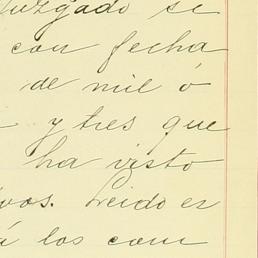 Juzgado se
con fecha
de mil o
y tres que
ha visto
vos. Leido es
á los com